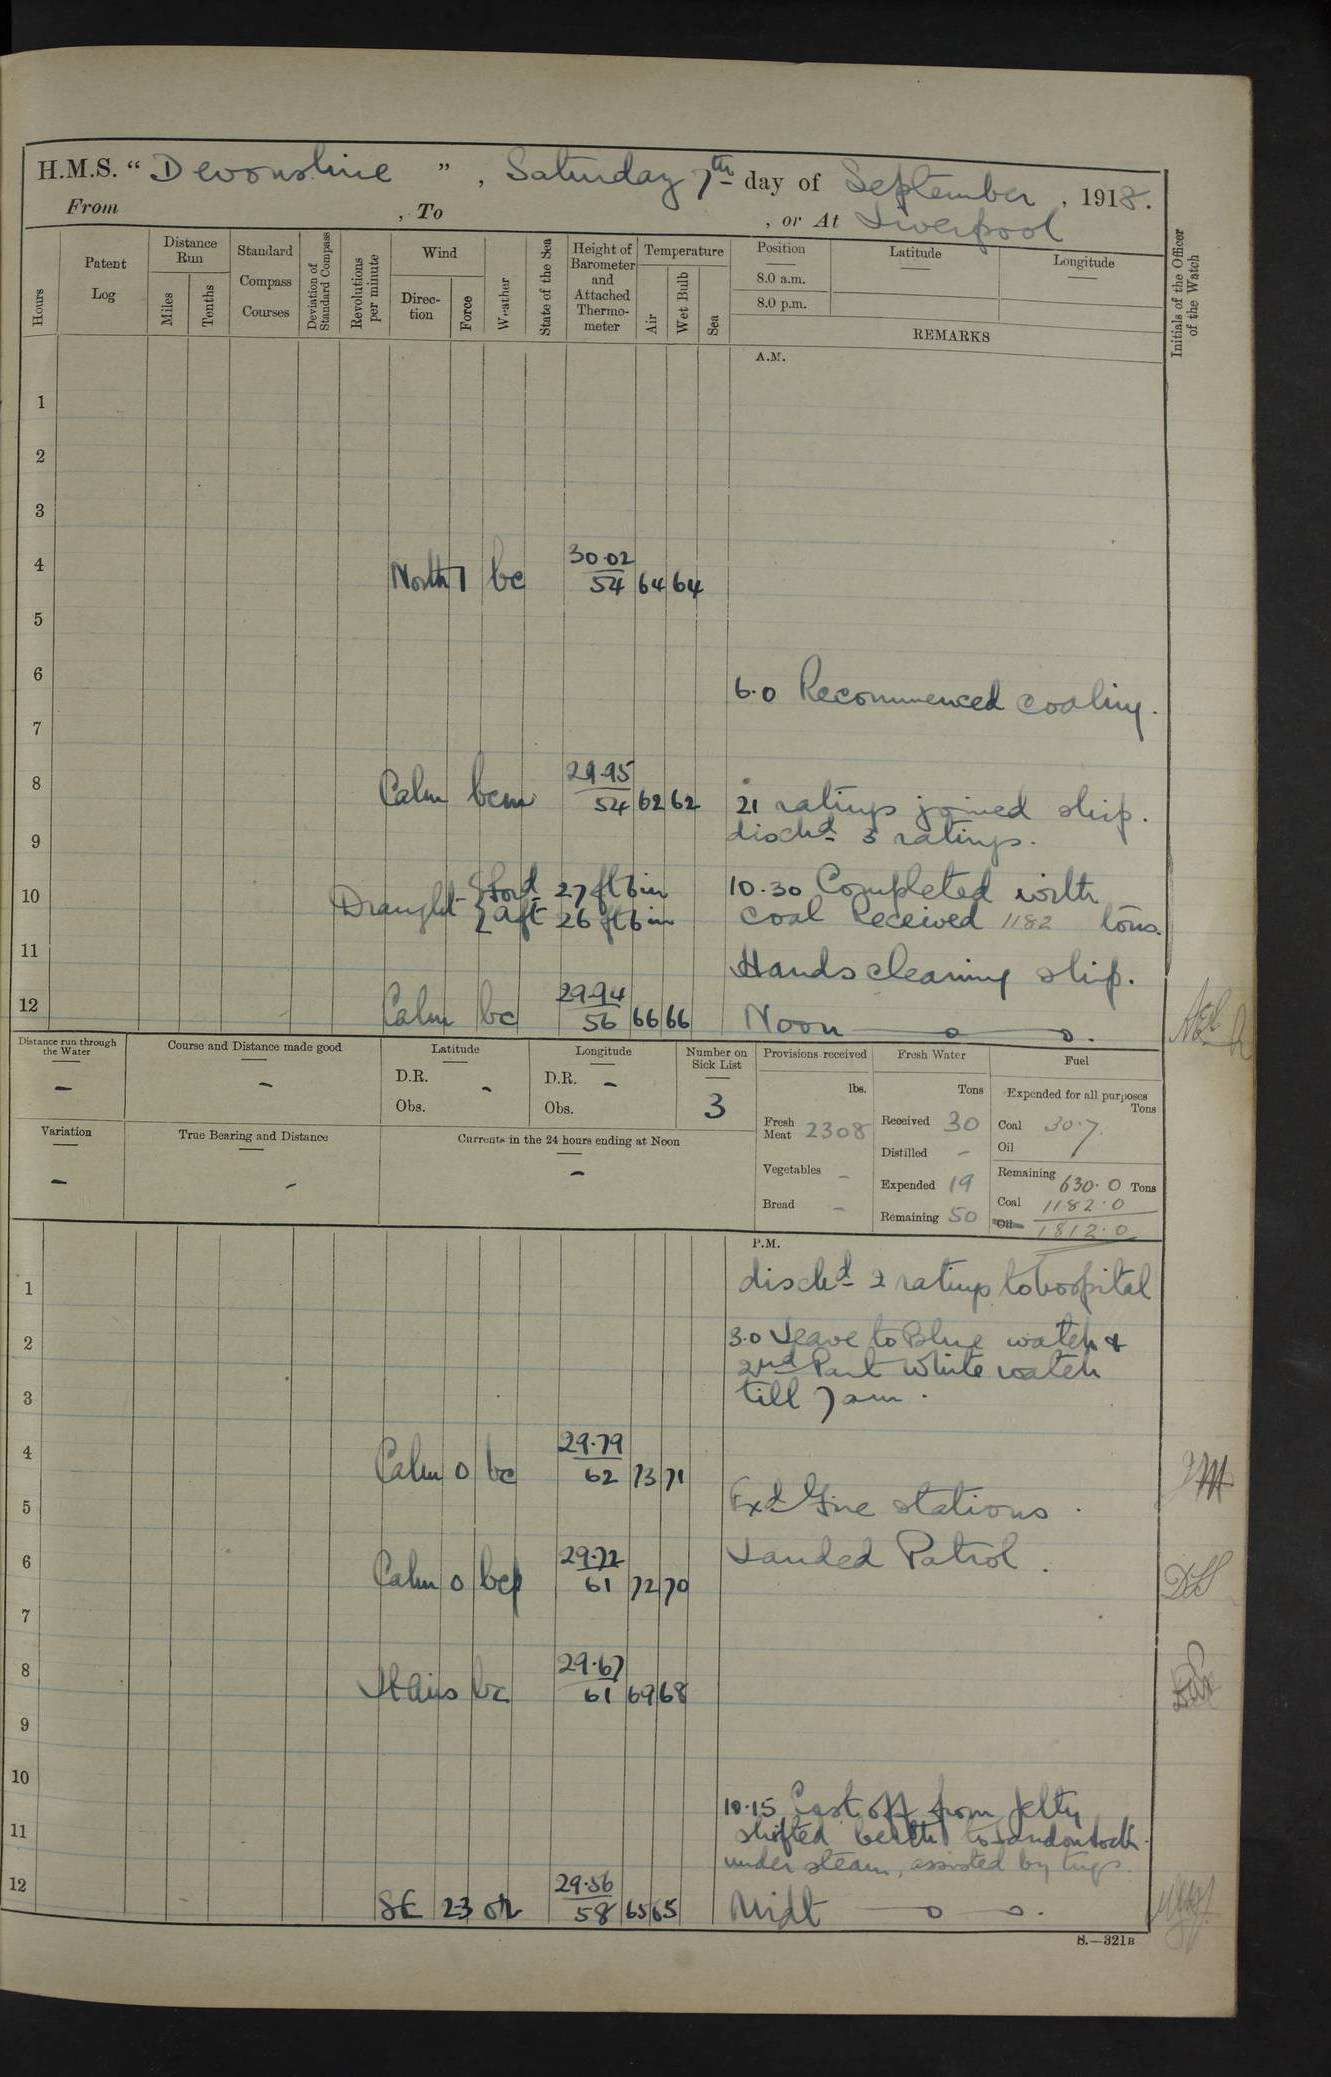 H.M.S. “ Devonshire ” , Saturday 7th day of September , 1918.
From , To , or At Liverpool
Hours
Patent Log
Distance Run
Miles
Tenths
Standard Compass Courses
Deviation of Standard Compass
Revolutions per minute
Wind
Direction
Force
Weather
State of the Sea
Height of Barometer and Attached Thermometer
Temperature
Air
Wet Bulb
Sea
Position
8.0 a.m.
8.0 p.m.
Latitude
Longitude
REMARKS
Initials of the Officer of the Watch
A.M.
1
2
3
4 North 1 bc 30.02 54 64 64
5
6 6.0 Recommenced coaling.
7
8 Calm bcm 29.95 54 62 62 21 ratings joined ship.
dischd 3 ratings.
9
10 Draught { Ford 27 ft 6 in 10.30 Completed with
{ aft 26 ft 6 in coal Received 1182 tons.
11 Hands cleaning ship.
12 Calm bc 29.94 56 66 66 Noon
Distance run through the Water
-
Course and Distance made good
-
Latitude
D.R. -
Obs.
Longitude
D.R. -
Obs.
Number on Sick List
3
Variation
-
True Bearing and Distance
-
Currents in the 24 hours ending at Noon
-
Provisions received
lbs.
Fresh Meat 2308
Vegetables -
Bread -
Fresh Water
Tons
Received 30
Distilled -
Expended 19
Remaining 50
Fuel
Expended for all purposes
Tons
Coal 30.7
Oil
Remaining 630.0 Tons
Coal 1182.0
Oil 1812.0
P.M.
1 dischd 2 ratings to hospital
2 3.0 Leave to Blue watch &
2nd Part White watch
3 till 7 am.
4 Calm 0 bc 29.79 62 73 71
5 Exd Fire stations.
6 Calm 0 bcp 29.72 61 72 70 Landed Patrol.
7
8 bc 29.67 61 69 68
9
10
10.15 Cast off from Jetty
11 shifted berth to Sandon dock
under steam, assisted by tugs.
12 SE 23 or 29.56 58 65 65 Midt
S.—321B